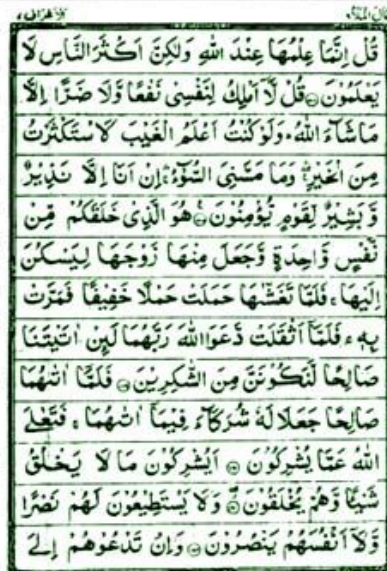 قال الملاء ٩
الاعراف ٧
قُلْ اِنَّمَا عِلْمُهَا عِنْدَ اللّٰهِ وَلٰكِنَّ اَكْثَرَ النَّاسِ لَا
يَعْلَمُوْنَ ۝ قُلْ لَّاۤ اَمْلِكُ لِنَفْسِيْ نَفْعًا وَّلَا ضَرًّا اِلَّا
مَا شَآءَ اللّٰهُ ۚ وَلَوْ كُنْتُ اَعْلَمُ الْغَيْبَ لَاسْتَكْثَرْتُ
مِنَ الْخَيْرِ ۛۚ وَمَا مَسَّنِيَ السُّوْٓءُ ۛۚ اِنْ اَنَا اِلَّا نَذِيْرٌ
وَّبَشِيْرٌ لِّقَوْمٍ يُّؤْمِنُوْنَ ۝ هُوَ الَّذِيْ خَلَقَكُمْ مِّنْ
نَّفْسٍ وَّاحِدَةٍ وَّجَعَلَ مِنْهَا زَوْجَهَا لِيَسْكُنَ
اِلَيْهَا ۚ فَلَمَّا تَغَشّٰىهَا حَمَلَتْ حَمْلًا خَفِيْفًا فَمَرَّتْ
بِهٖ ۚ فَلَمَّاۤ اَثْقَلَتْ دَّعَوَا اللّٰهَ رَبَّهُمَا لَىِٕنْ اٰتَيْتَنَا
صَالِحًا لَّنَكُوْنَنَّ مِنَ الشّٰكِرِيْنَ ۝ فَلَمَّاۤ اٰتٰىهُمَا
صَالِحًا جَعَلَا لَهٗ شُرَكَآءَ فِيْمَاۤ اٰتٰىهُمَا ۚ فَتَعٰلَى
اللّٰهُ عَمَّا يُشْرِكُوْنَ ۝ اَيُشْرِكُوْنَ مَا لَا يَخْلُقُ
شَيْـًٔا وَّهُمْ يُخْلَقُوْنَ ۝ وَلَا يَسْتَطِيْعُوْنَ لَهُمْ نَصْرًا
وَّلَاۤ اَنْفُسَهُمْ يَنْصُرُوْنَ ۝ وَاِنْ تَدْعُوْهُمْ اِلَى